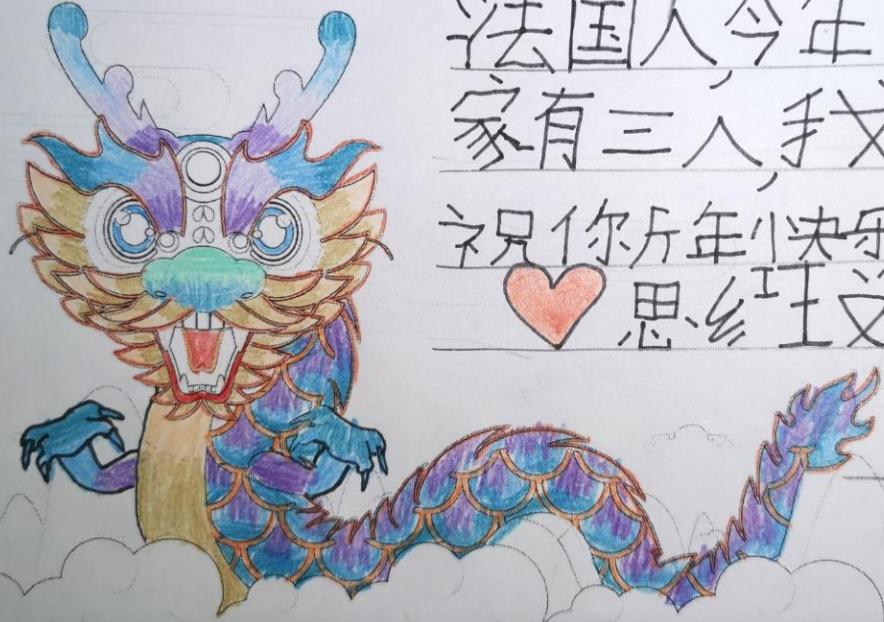 法国人,今年
家有三人,我
祝你斤年快乐
思